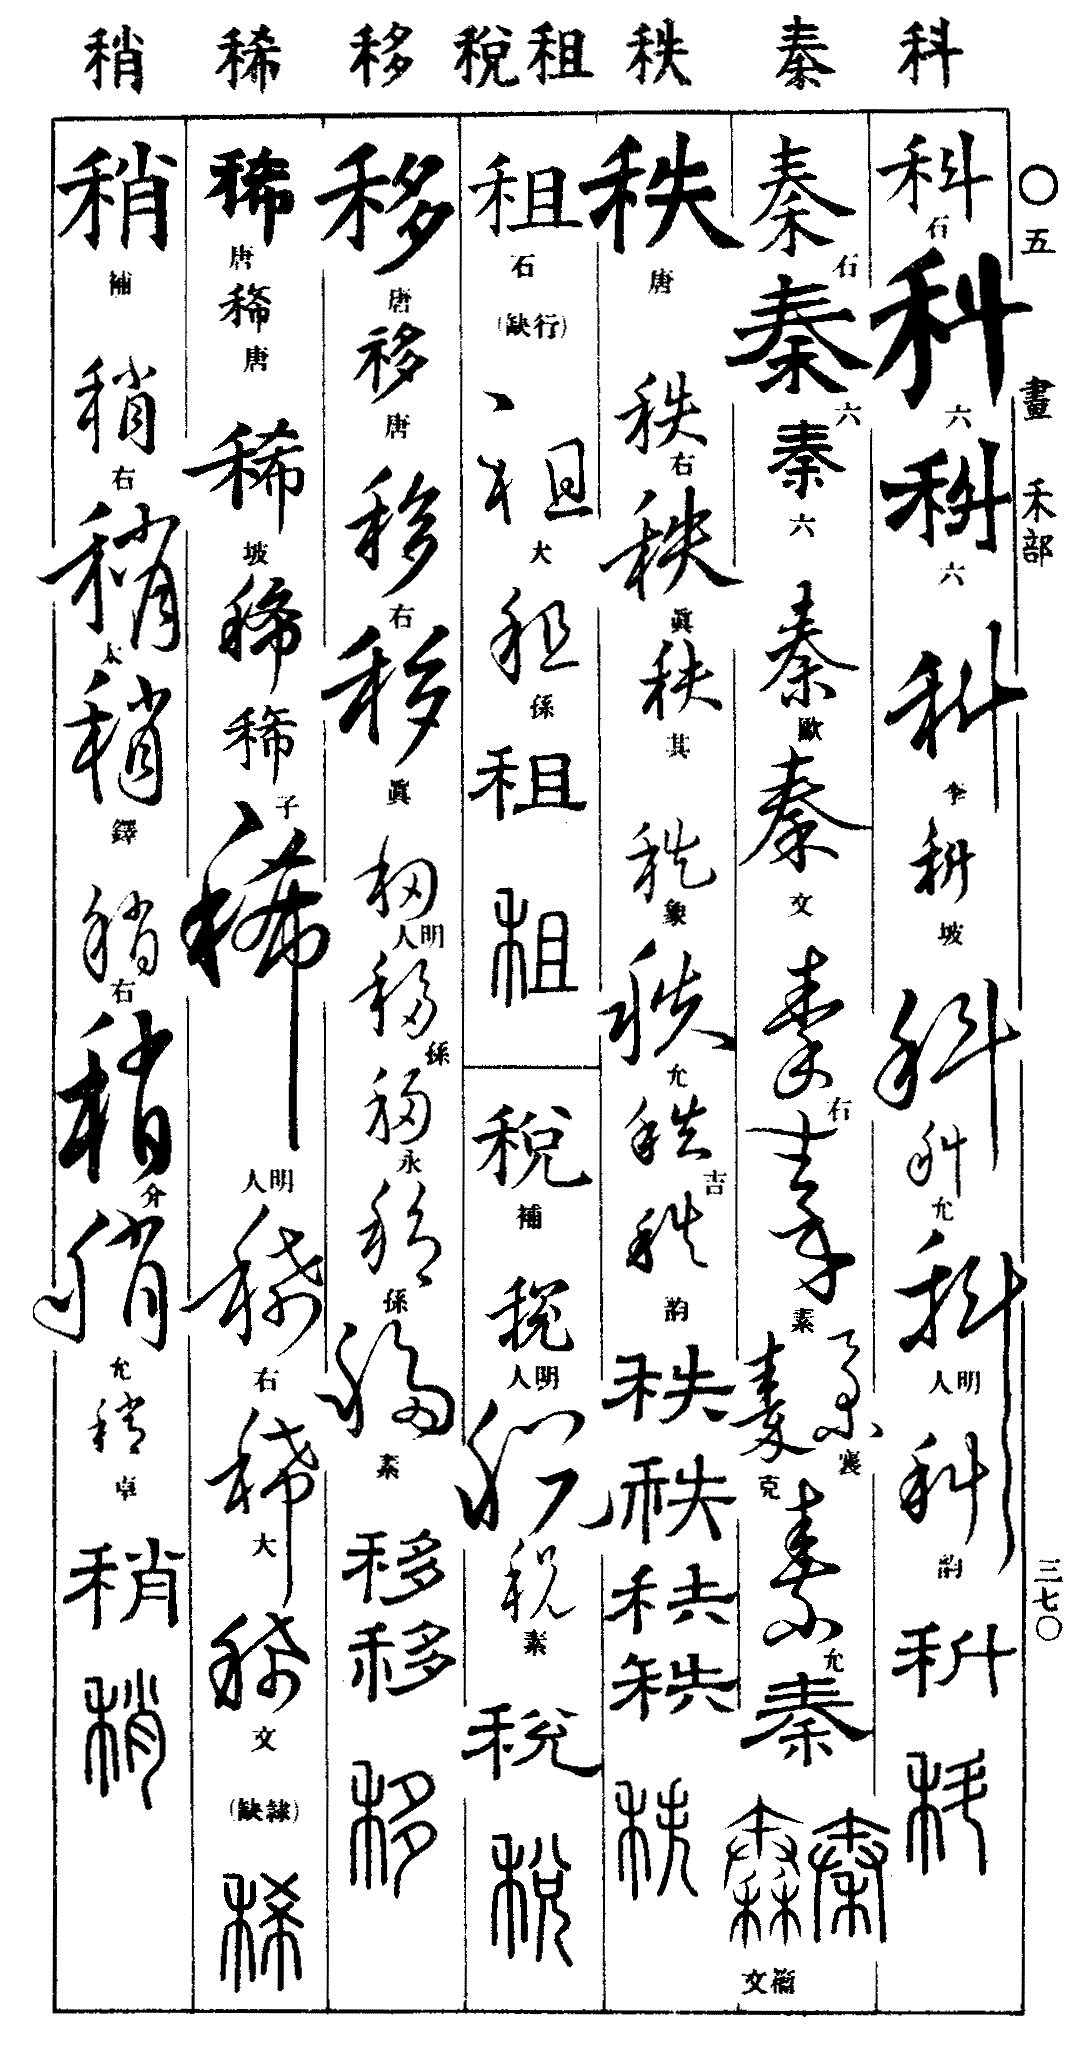 科 秦 秩 租 稅 移 稀 稍
〇五 畫 禾部 三七〇
科 石 科 六 科 六 科 李 科 坡 科 科 允 科 明人 科 韵 科 科
秦 石 秦 六 秦 六 秦 歐 秦 文 秦 右 秦 素 秦 襄 秦 克 秦 允 秦 秦 秦 籀文
秩 唐 秩 右 秩 眞 秩 其 秩 象 秩 允 秩 吉 秩 韵 秩 秩 秩 秩 秩
租 石 (行缺) 租 大 租 係 租 租
稅 補 稅 明人 稅 稅 素 稅 稅
移 唐 移 唐 移 右 移 眞 移 明人 移 係 移 永 移 係 移 素 移 移 移
稀 唐 稀 唐 稀 坡 稀 稀 子 稀 明人 稀 右 稀 大 稀 文 (隸缺) 稀
稍 補 稍 右 稍 太 稍 鐸 稍 右 稍 介 稍 允 稍 卓 稍 稍